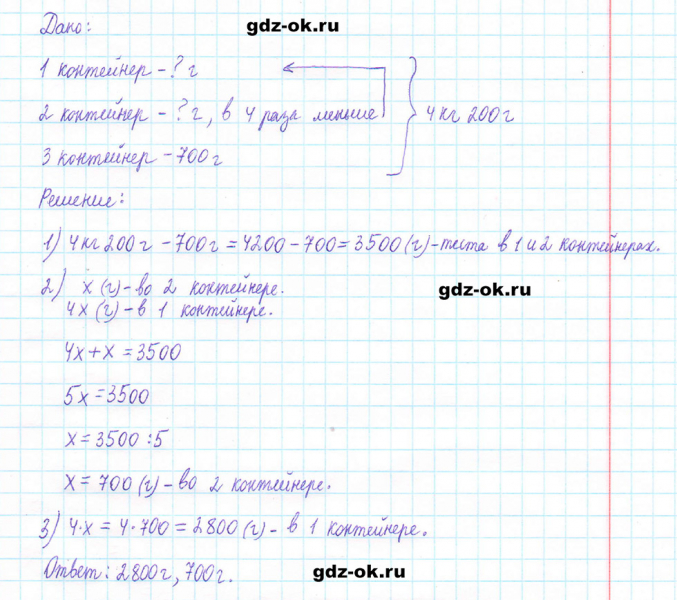 Дано:
gdz-ok.ru
1 контейнер - ? г
2 контейнер - ? г, в 4 раза меньше
4 кг 200 г
3 контейнер - 700 г
Решение:
1) 4 кг 200 г - 700 г = 4200 - 700 = 3500 (г) - теста в 1 и 2 контейнерах.
2) x (г) - во 2 контейнере.
gdz-ok.ru
4x (г) - в 1 контейнере.
4x + x = 3500
5x = 3500
x = 3500 : 5
x = 700 (г) - во 2 контейнере.
3) 4·x = 4·700 = 2800 (г) - в 1 контейнере.
Ответ: 2800 г, 700 г.
gdz-ok.ru